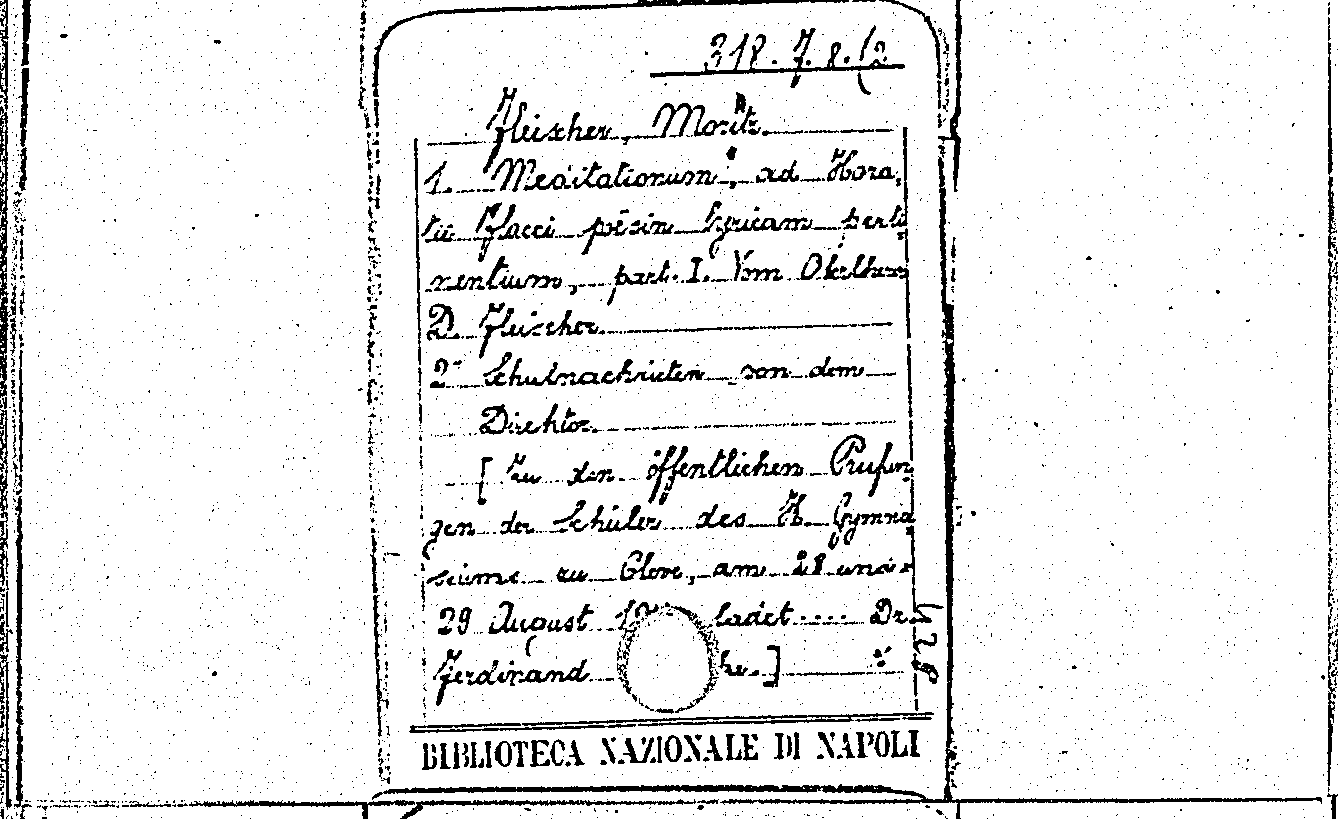 318.7.8.(2
Fleischer, Moritz.
1. Meditationum, ad Hora-
tii Flacci poësin lyricam perti-
nentium, part. I. Vom Oberlehrer
D. Fleischer.
2º Schulnachrichten von dem
Direktor.
[Zu den öffentlichen Prüfun-
gen der Schüler des K. Gymna-
siums zu Cleve, am 28 und
29 August ladet .... Dr
Ferdinand
BIBLIOTECA NAZIONALE DI NAPOLI